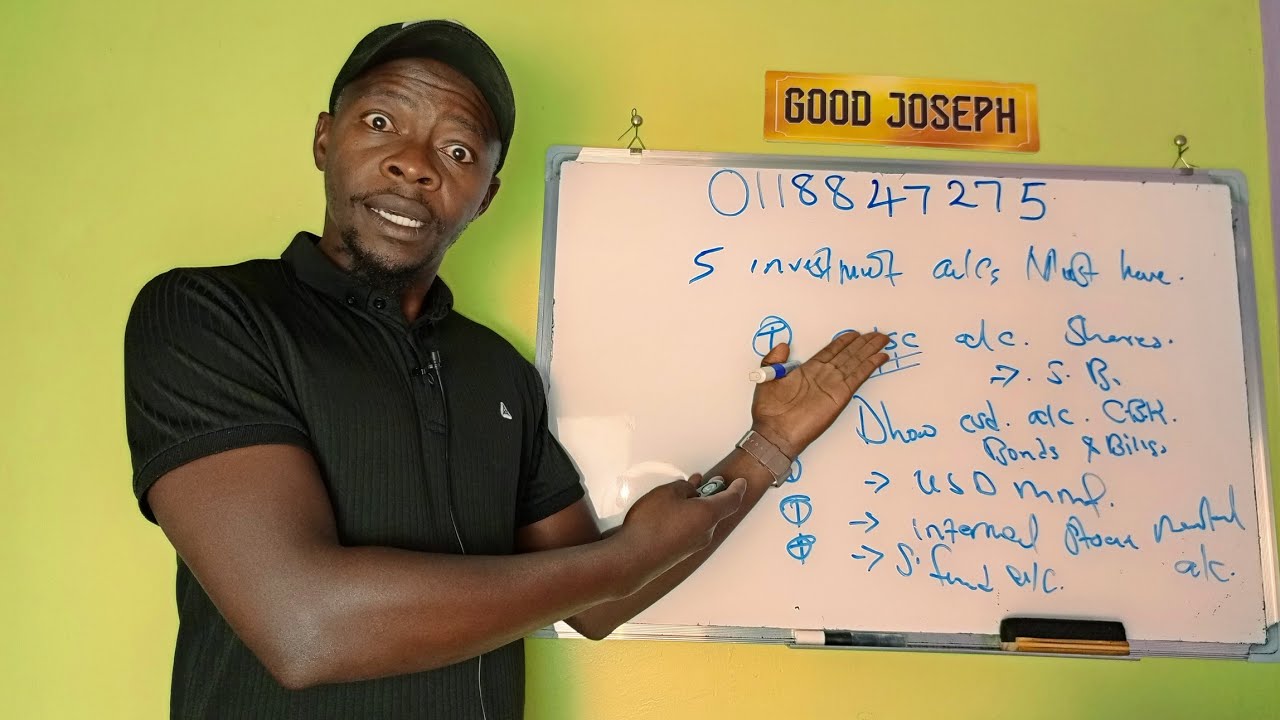 GOOD JOSEPH
0118847275
5 investment a/cs Must have.
a/c. Shares.
→. S. B.
Dhow csd. a/c. CBK.
Bonds & Bills
→ USD mmf.
→ internal Stock Market
a/c.
→ S. fund a/c.